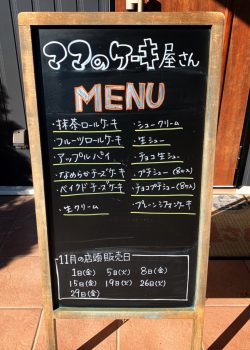 ママのケーキ屋さん
MENU
・抹茶ロールケーキ
・フルーツロールケーキ
・アップルパイ
・なめらかチーズケーキ
・ベイクドチーズケーキ
・生クリーム
・シュークリーム
・生シュー
・チョコ生シュー
・プチシュー(8コ入)
・チョコプチシュー(8コ入)
・プレーンシフォンケーキ
11月の店頭販売日
1日(金) 5日(火) 8日(金)
15日(金) 19日(火) 26日(火)
29日(金)